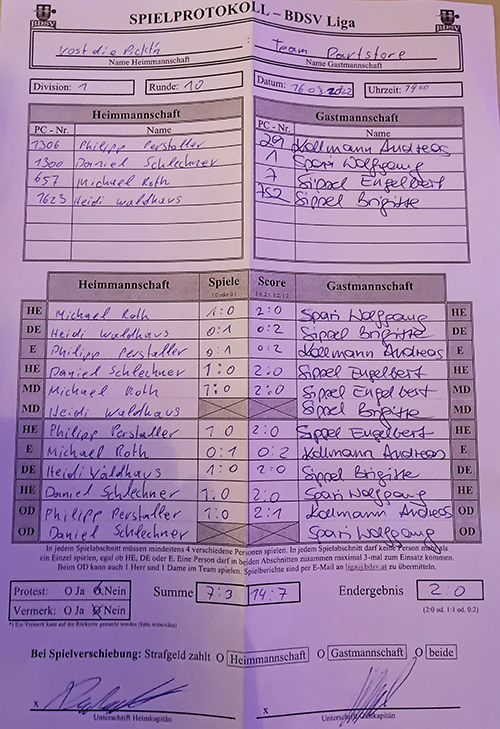 SPIELPROTOKOLL – BDSV Liga
BDSV
BDSV
vost die Pickt'n : Team Dartstore
Name Heimmannschaft Name Gastmannschaft
Division: 1 Runde: 10 Datum: 16.03.2022 Uhrzeit: 19:00
Heimmannschaft Gastmannschaft
PC - Nr. Name PC - Nr. Name
1306 Philipp Perstaller 29 Kollmann Andreas
1300 Daniel Schlechner 1 Spari Wolfgang
657 Michael Roth 7 Sippel Engelbert
1623 Heidi Waldhaus 752 Sippel Brigitte
Heimmannschaft Spiele Score Gastmannschaft
1:0 oder 0:1 2:0, 2:1, 0:2, 1:2
HE Michael Roth 1:0 2:0 Spari Wolfgang HE
DE Heidi Waldhaus 0:1 0:2 Sippel Brigitte DE
E Philipp Perstaller 0:1 0:2 Kollmann Andreas E
HE Daniel Schlechner 1:0 2:0 Sippel Engelbert HE
MD Michael Roth 1:0 2:0 Sippel Engelbert MD
MD Heidi Waldhaus Sippel Brigitte MD
HE Philipp Perstaller 1 0 2:0 Sippel Engelbert HE
E Michael Roth 0:1 0:2 Kollmann Andreas E
DE Heidi Waldhaus 1:0 2:0 Sippel Brigitte DE
HE Daniel Schlechner 1:0 2:0 Spari Wolfgang HE
OD Philipp Perstaller 1:0 2:1 Kollmann Andreas OD
OD Daniel Schlechner Spari Wolfgang OD
In jedem Spielabschnitt müssen mindestens 4 verschiedene Personen spielen. In jedem Spielabschnitt darf keine Person mehrmals
ein Einzel spielen, egal ob HE, DE oder E. Eine Person darf in beiden Abschnitten zusammen maximal 3-mal zum Einsatz kommen.
Beim OD kann auch 1 Herr und 1 Dame im Team spielen. Spielberichte sind per E-Mail an liga@bdsv.at zu übermitteln.
Protest: O Ja O Nein Summe 7:3 14:7 Endergebnis 2:0
Vermerk: O Ja O Nein (2:0 od. 1:1 od. 0:2)
*) Ein Vermerk kann auf der Rückseite gemacht werden (bitte
Bei Spielverschiebung: Strafgeld zahlt O Heimmannschaft O Gastmannschaft O beide
x x
Unterschrift Heimkapitän Unterschrift Gastkapitän